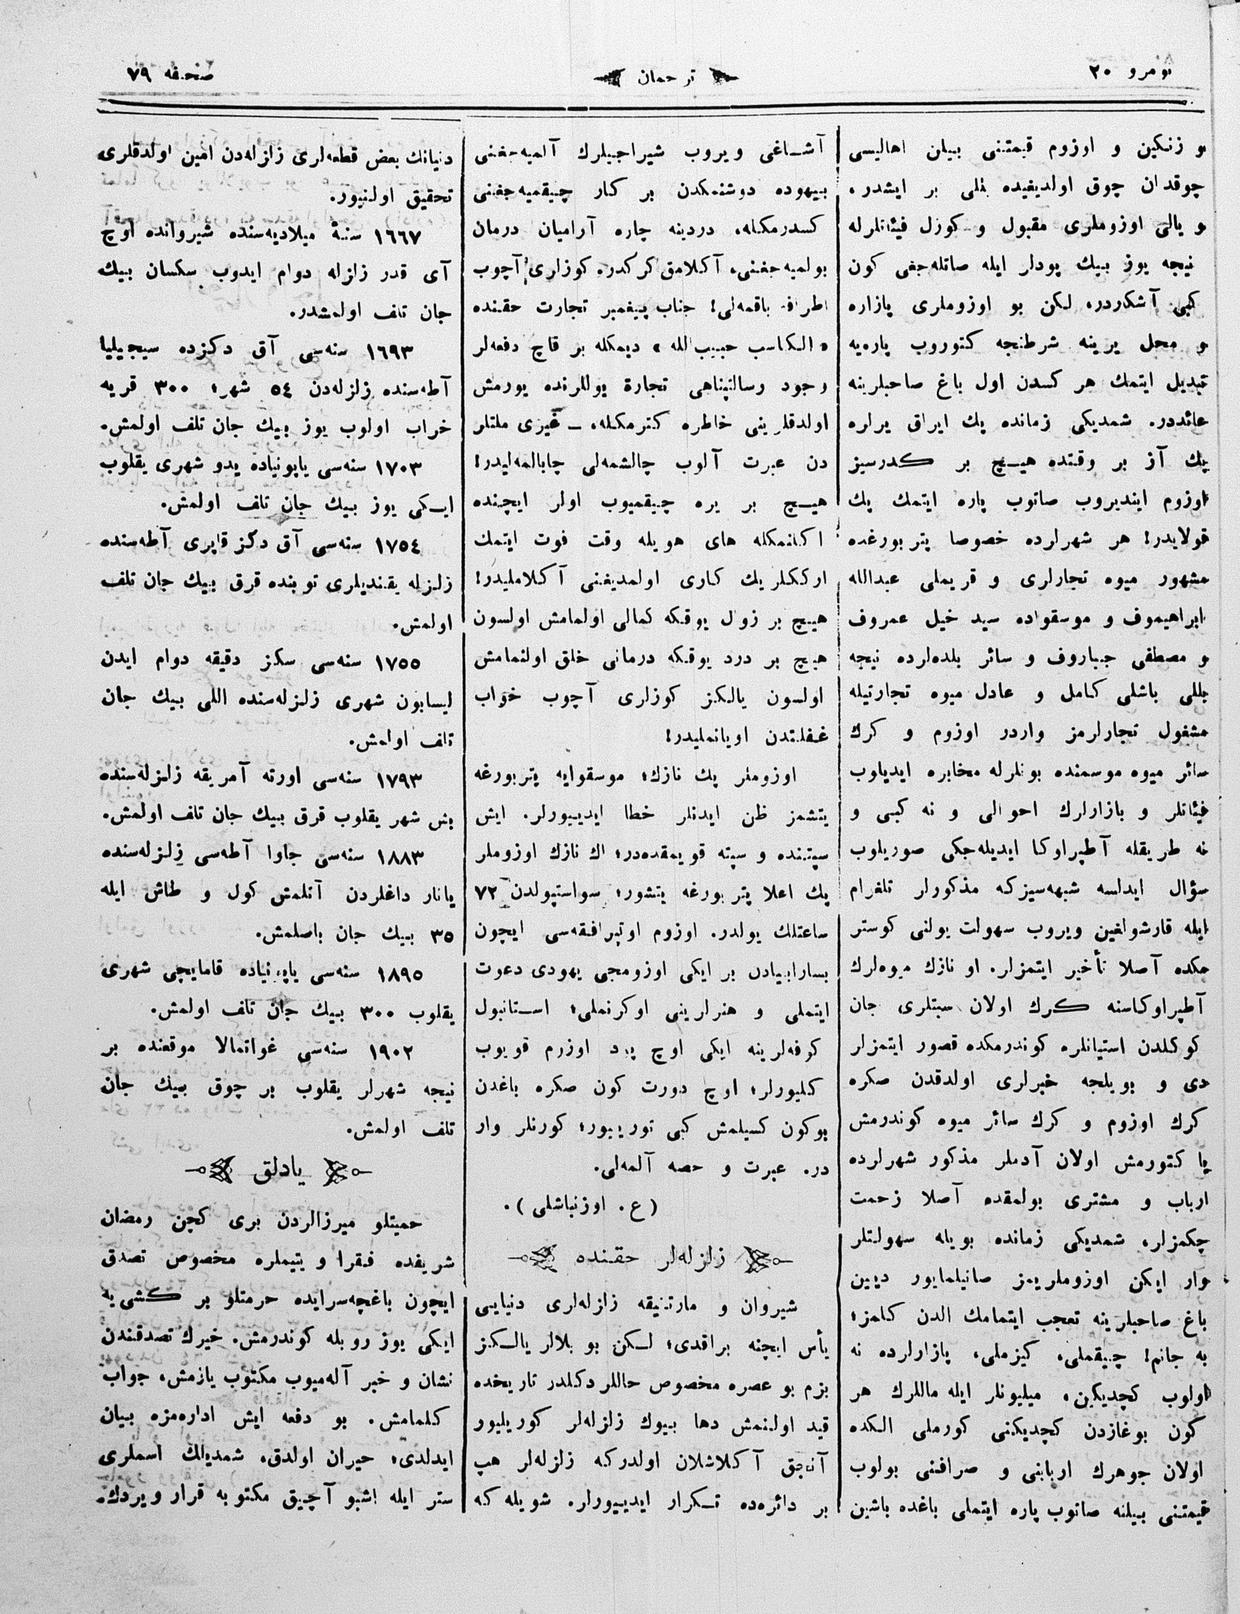 نومرو ٢٠
ترجمان
صحیفه ٧٩
و زنکین و اوزوم قیمتنی بیلن اهالیسی
چوقدان چوق اولدیغیده بللی بر ایشدر،
و یالی اوزوملری مقبول و کوزل فیئاتلرله
نیجه یوز بیك پودلر ایله صاتله‌جغی کون
کبی آشکاردر، لکن بو اوزوملری پازاره
و محل یرینه شرطنجه کتوروب پاره‌یه
تبدیل ایتمك هر کسدن اول باغ صاحبلرینه
عائددر. شمدیکی زمانده پك ایراق یرلره
پك آز بر وقتده هیـچ بر کـدرسیز
اوزوم ایندیروب صاتوب پاره ایتمك پك
قولایدر! هر شهرلرده خصوصا پتربورغده
مشهور میوه تجارلری و قریملی عبدالله
ابراهیموف و موسقواده سید خیل عمروف
و مصطفی جبباروف و سائر بلده‌لرده نیجه
بللی باشلی کامل و عادل میوه تجارتیله
مشغول تجارلرمز واردر اوزوم و کرك
سائر میوه موسمنده بونلرله مخابره ایدیاوب
فیئاتلر و بازارلرك احوالی و نه کبی و
نه طریقله آطپراوکا ایدیله‌جکی صوریلوب
سؤال ایدلسه شبهه‌سیزکه مذکورلر تلغرام
ایله قارشولغین ویروب سهولت یولنی کوستر
مکده آصلا تأخیر ایتمزلر. او نازك میوه‌لرك
آطپراوکاسنه کـرك اولان سبتلری جان
کوکلدن استیانلره کوندرمکده قصور ایتمزلر
دی و بویلجه خبرلری اولدقدن صکره
کرك اوزوم و کرك سائر میوه کوندرمش
یا کتورمش اولان آدملر مذکور شهرلرده
ارباب و مشتری بولمقده آصلا زحمت
چکمزلر، شمدیکی زمانده بویله سهولتلر
وار ایکن اوزوملریمز صاتیلمایور دیین
باغ صاحبلرینه تعجب ایتمامك الدن کلمز؛
به جانم! چیقملی، کیزملی، پازارلرده نه
اولوب کچدیکین، میلیونلر ایله ماللرك هر
کون بوغازدن کچدیکنی کورملی الکده
اولان جوهرك اربابنی و صرافنی بولوب
قیمتنی بیلنه صاتوب پاره ایتملی باغده باشین
آشـاغی ویروب شیراجیلرك آلمیه‌جغنی
بیهوده دوشنمکدن بر کار چیقمیه‌جغنی
کسدرمکله، دردینه چاره آرامیان درمان
بولمیه‌جغنی، آکلامق کرکدر. کوزلری آچوب
اطرافه باقمه‌لی! جناب پیغمبر تجارت حقنده
«الکاسب حبیب الله» دیمکله بر قاچ دفعه‌لر
وجود رسالتپناهی تجارة یوللرنده یورمش
اولدقلرینی خاطره کترمکله، ــ غیری ملتلر
دن عبرت آلوب چالشمه‌لی چابالمه‌لیدر!
هیـچ بر یره چیقمیوب اولر ایچنده
اکلنمکله های هویله وقت فوت ایتمك
ارککلریك کاری اولمدیغنی آکلاملیدر!
هیـچ بر زوال یوقکه کمالی اولمامش اولسون
هیچ بر درد یوقکه درمانی خلق اولنمامش
اولسون یالکز کوزلری آچوب خواب
غفلتدن اویانملیدر!
اوزوملر پك نازك؛ موسقوایه پتربورغه
یتشمز ظن ایدنلر خطا ایدییورلر. ایش
سپتنده و سپته قویمقده‌در؛ اك نازك اوزوملر
پك اعلا پتربورغه یتشور؛ سواستپولدن ٧٢
ساعتلك یولدر. اوزوم اوتپرافقه‌سی ایچون
بسارابیادن بر ایکی اوزومجی یهودی دعوت
ایتملی و هنرلرینی اوکرنملی؛ اسـتانبول
کوفه‌لرینه ایکی اوچ پود اوزوم قویوب
کلیورلر؛ اوچ دورت کون صکره باغدن
بوکون کسیلمش کبی توریبور؛ کورنلر وار
در. عبرت و حصه آلمه‌لی.
(ع. اوزنباشلی).
زلزله‌لر حقنده
شیروان و مارتنیقه زلزله‌لری دنیایی
یأس ایچنه براقدی؛ لـکن بو بلالر یالـکز
بزم بو عصره مخصوص حاللر دکلدر تاریخده
قید اولنمش دها بیوك زلزله‌لر کوریلیور
آنجق آکلاشلان اولدرکه زلزله‌لر هپ
بر دائره‌ده تـکرار ایدییورلر. شویله که
دنیانك بعض قطعه‌لری زلزله‌دن امین اولدقلری
تحقیق اولنیور.
١٦٦٧ سنهٔ میلادیه‌سنده شیروانده اوچ
آی قدر زلزله دوام ایدوب سکسان بیك
جان تلف اولمشدر.
١٦٩٣ سنه‌سی آق دکزده سیجیلیا
آطه‌سنده زلزله‌دن ٥٤ شهر؛ ٣٠٠ قریه
خراب اولوب یوز بیك جان تلف اولمش.
١٧٠٣ سنه‌سی یاپونیاده یدو شهری یقلوب
ایـکی یوز بیك جان تلف اولمش.
١٧٥٤ سنه‌سی آق دکز قاپری آطه‌سنده
زلزله یقندیلری توبنده قرق بیك جان تلف
اولمش.
١٧٥٥ سنه‌سی سکز دقیقه دوام ایدن
لیسابون شهری زلزله‌سنده اللی بیك جان
تلف اولمش.
١٧٩٣ سنه‌سی اورته آمریقه زلزله‌سنده
بش شهر یقلوب قرق بیك جان تلف اولمش.
١٨٨٣ سنه‌سی جاوا آطه‌سی زلزله‌سنده
یانار داغلردن آتلمش کول و طاش ایله
٣٥ بیك جان باصلمش.
١٨٩٥ سنه‌سی یاپونیاده قامایچی شهری
یقلوب ٣٠٠ بیك جان تلف اولمش.
١٩٠٢ سنه‌سی غواتمالا موقعنده بر
نیجه شهرلر یقلوب بر چوق بیك جان
تلف اولمش.
یادلق
حمیتلو میرزالردن بری کچن رمضان
شریفده فقرا و یتیملره مخصوص تصدق
ایچون باغچه‌سرایده حرمتلو بر کـشی یه
ایکی یوز روبله کوندرمش. خیرك تصدقندن
نشان و خبر آله‌میوب مکتوب یازمش، جواب
کلمامش. بو دفعه ایش اداره‌مزه بیان
ایدلدی؛ حیران اولدق، شمدیلك اسملری
ستر ایله اشبو آچیق مکتوبه قرار ویردك.